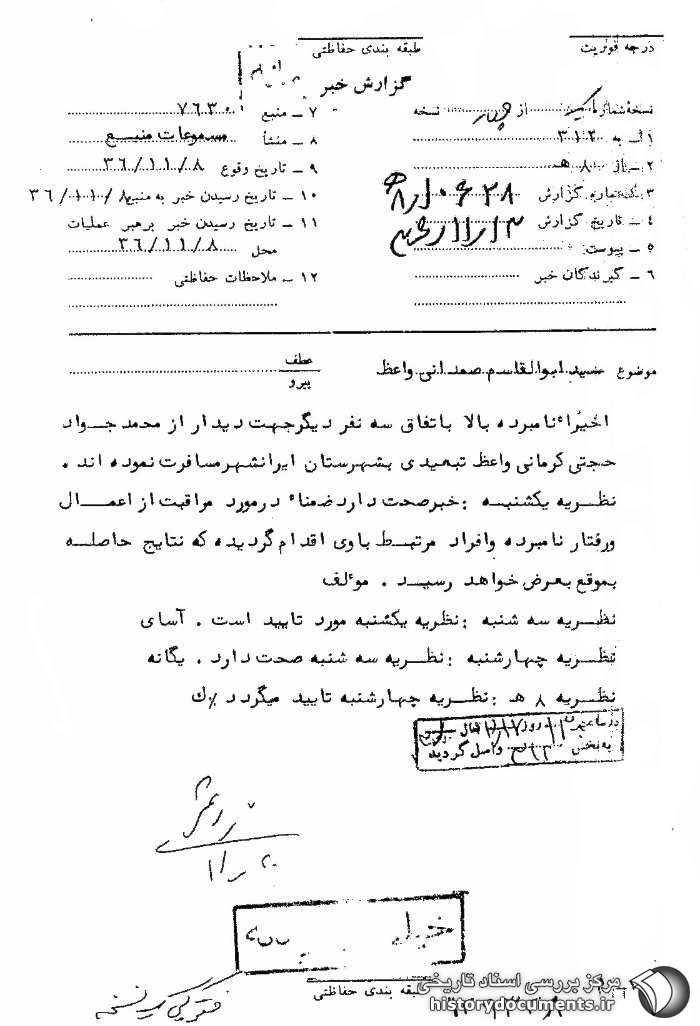 درجه فوریت
طبقه بندی حفاظتی
گزارش خبر
نسخه شماره یک از چهار نسخه
۱ـ به ۳۱۲
۲ـ از ۸ هـ
۳ـ شماره گزارش ۱۰۶۲۸/ ۸هـ
۴ـ تاریخ گزارش
۵ـ پیوست
۶ـ گیرندگان خبر
۷ـ منبع ۷۶۳۰
۸ـ منشأ مسموعات منبع
۹ـ تاریخ وقوع ۳۶/۱۱/۸
۱۰ـ تاریخ رسیدن خبر به منبع ۳۶/۱۱/۸
۱۱ـ تاریخ رسیدن خبر برهبر عملیات
محل ۳۶/۱۱/۸
۱۲ـ ملاحظات حفاظتی
موضوع سید ابوالقاسم صمدانی واعظ
عطف
پیرو
اخیراً نامبرده بالا باتفاق سه نفر دیگر جهت دیدار از محمد جواد
حجتی کرمانی واعظ تبعیدی بشهرستان ایرانشهر مسافرت نموده اند .
نظریه یکشنبه : خبر صحت دارد ضمناً در مورد مراقبت از اعمال
و رفتار نامبرده وافراد مرتبط باوی اقدام گردیده که نتایج حاصله
بموقع بعرض خواهد رسید . موٴلف
نظریه سه شنبه : نظریه یکشنبه مورد تایید است . آسای
نظریه چهارشنبه : نظریه سه شنبه صحت دارد . یگانه
نظریه ۸ هـ : نظریه چهارشنبه تایید میگردد
در ساعت روز
به بخش ۳۱۲ واصل گردید
خیلی
طبقه بندی حفاظتی
مرکز بررسی اسناد تاریخی
historydocuments.ir